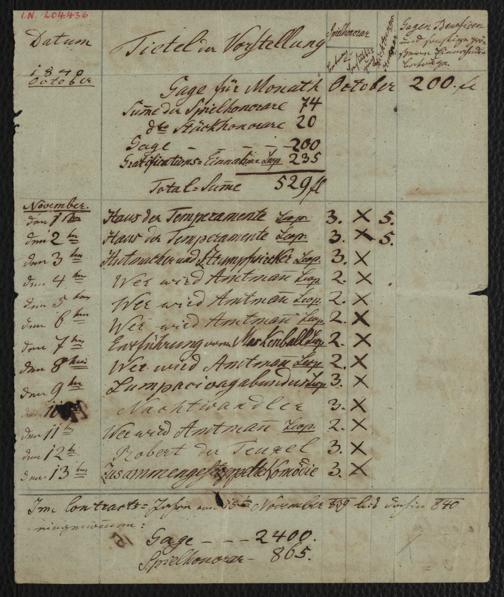 I.N. 204.436
Datum
Tietel der Vorstellung
Spielhonorar
Gagen
1840
October
Gage für Monath October 200. fl
Summe der Spielhonorare 74
dto Stückhonorare 20
Gage - - - 200
Gratifications-Einnahme Leop. 235
Total-Summe 529 fl
November.
den 1ten Haus der Temperamente Leop. 3. X 5.
den 2ten Haus der Temperamente Leop. 3. X 5.
den 3ten Hutmacher und Strumpfwirker Leop. 3. X
den 4ten Wer wird Amtman Leop. 2. X
den 5ten Wer wird Amtman Leop. 2. X
den 6ten Wer wird Amtman Leop. 2. X
den 7ten Entführung vom Maskenball Leop. 2. X
den 8ten Wer wird Amtman Leop. 2. X
den 9ten Lumpacivagabundus Leop 3. X
Nachtwandler 3. X
den 11ten Wer wird Amtman Leop. 2. X
den 12ten Robert der Teuxel 3. X
den 13ten Zusammengestoppelte Komödie 3. X
Im Contracts-Jahre vom 15ten November 839 bis 840
Gage - - - 2400.
Spielhonorar - 865.